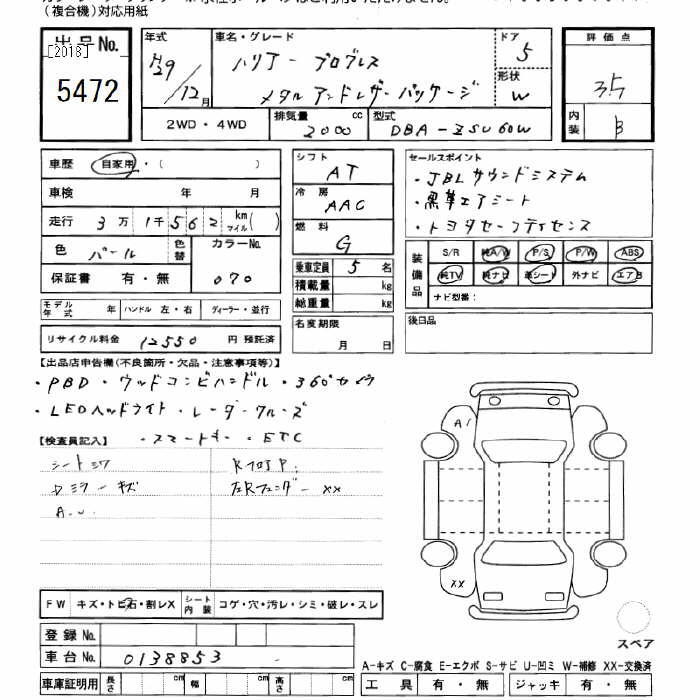 (複合機)対応用紙
出品No.
[2018]
5472
年式
H29/12月
車名・グレード
ハリアー プログレス
メタル アンド レザーパッケージ
ドア
5
形状
W
評価点
3.5
内装
B
2WD・4WD
排気量
2000 cc
型式
DBA-ZSU60W
車歴 自家用・( )
車検 年 月
走行 3万1千562 km マイル( )
色 パール 色替 カラーNo. 070
保証書 有・無
モデル年式 年 ハンドル 左・右 ディーラー・並行
リサイクル料金 12550 円 預託済
シフト
AT
冷房
AAC
燃料
G
乗車定員 5 名
積載量 kg
総重量 kg
名変期限
月 日
セールスポイント
・JBLサウンドシステム
・黒革エアシート
・トヨタセーフティセンス
装備品
S/R 純A/W P/S P/W ABS
純TV 純ナビ 革シート 外ナビ エアB
ナビ型番:
後日品
【出品店申告欄(不良箇所・欠品・注意事項等)】
・PBD・ウッドコンビハンドル・360°カメラ
・LEDヘッドライト・レーダークルーズ
・スマートキー・ETC
【検査員記入】
シートシワ
ミラーキズ
A.U.
左Rフェンダー XX
A1
XX
FW キズ・トビ石・割レX シート内装 コゲ・穴・汚レ・シミ・破レ・スレ
スペア
登録No.
車台No. 0138853
A-キズ C-腐食 E-エクボ S-サビ U-凹ミ W-補修 XX-交換済
車庫証明用 長さ cm 幅 cm 高さ cm
工具 有・無 ジャッキ 有・無